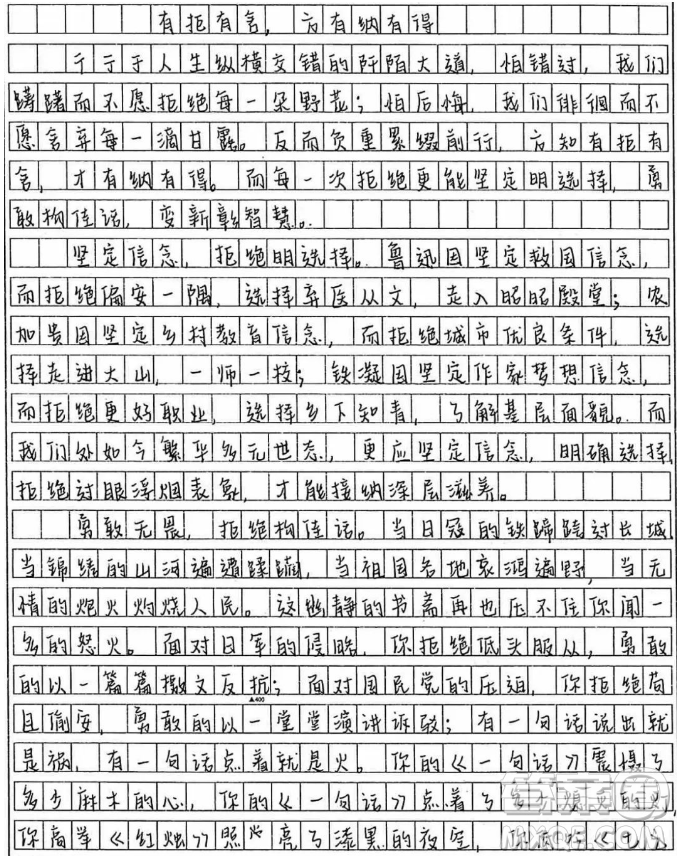 有拒有舍，方有纳有得
彳亍于人生纵横交错的阡陌大道，怕错过，我们
踌躇而不愿拒绝每一朵野花；怕后悔，我们徘徊而不
愿舍弃每一滴甘露。反而负重累缀前行，方知有拒有
舍，才有纳有得。而每一次拒绝更能坚定明选择，勇
敢构佳话，变新彰智慧。
坚定信念，拒绝明选择。鲁迅因坚定救国信念，
而拒绝偏安一隅，选择弃医从文，走入昭昭殿堂；农
加贵因坚定乡村教育信念，而拒绝城市优良条件，选
择走进大山，一师一校；铁凝因坚定作家梦想信念，
而拒绝更好职业，选择乡下知青，了解基层面貌。而
我们处如今繁华多元世态，更应坚定信念，明确选择，
拒绝过眼浮烟表象，才能接纳深层滋养。
勇敢无畏，拒绝构佳话。当日寇的铁蹄踏过长城，
当锦绣的山河遍遭蹂躏，当祖国各地哀鸿遍野，当无
情的炮火灼烧人民。这幽静的书斋再也压不住你闻一
多的怒火。面对日军的侵略，你拒绝低头服从，勇敢
的以一篇篇檄文反抗；面对国民党的压迫，你拒绝苟
▲400
且偷安，勇敢的以一堂堂演讲诉驳；有一句话说出就
是祸，有一句话点着就是火。你的《一句话》震慑了
多少麻木的心，你的《一句话》点着了的火
你高举《红烛》照亮了漆黑的夜空，你